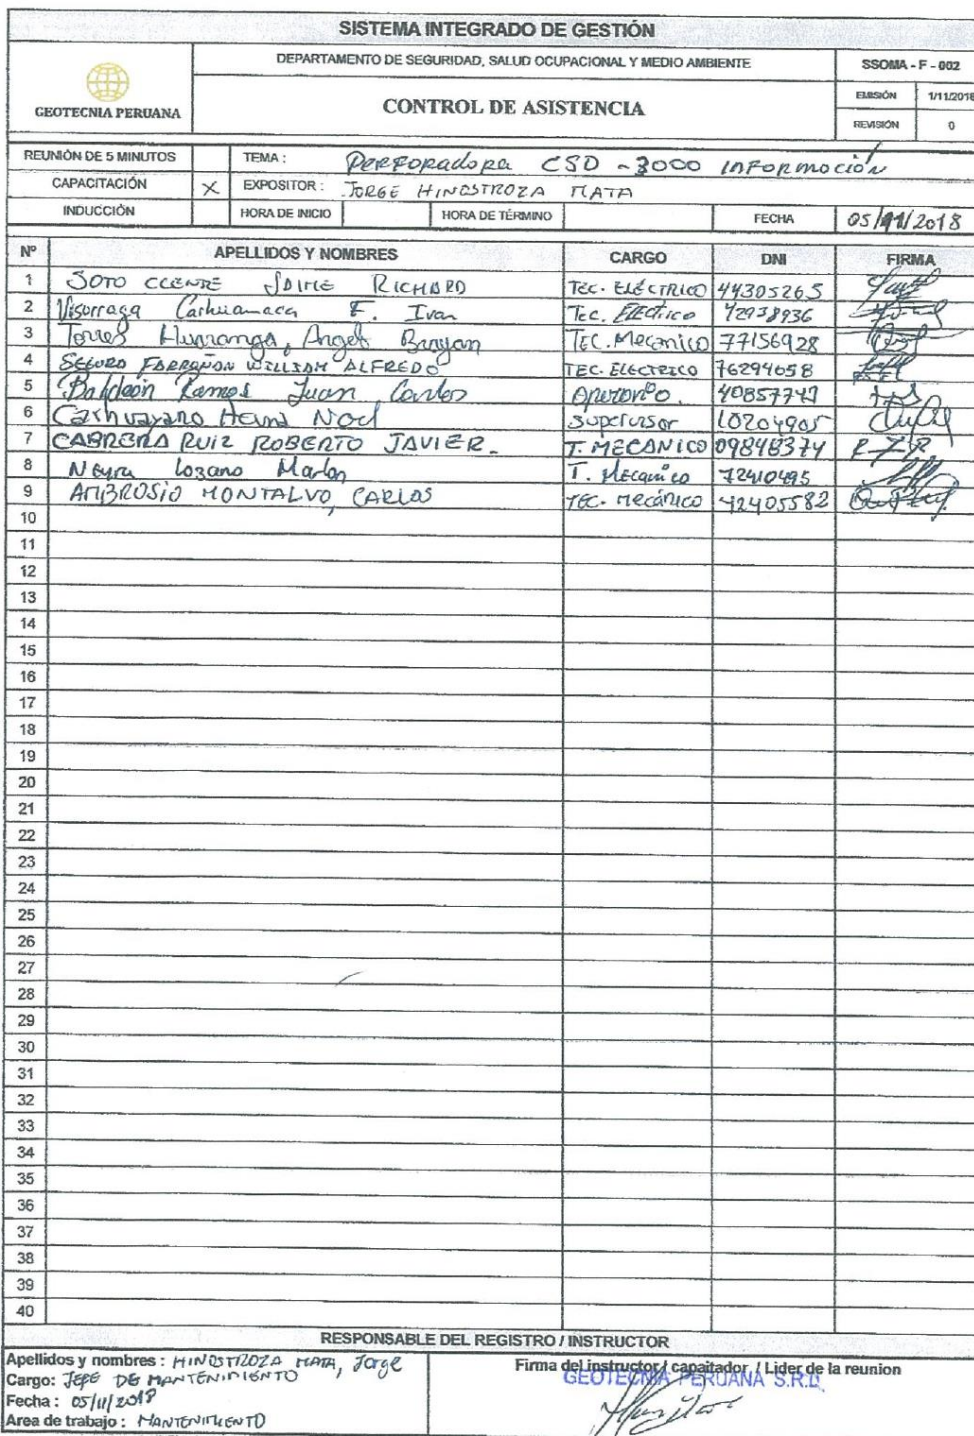 SISTEMA INTEGRADO DE GESTIÓN
GEOTECNIA PERUANA
DEPARTAMENTO DE SEGURIDAD, SALUD OCUPACIONAL Y MEDIO AMBIENTE
SSOMA - F - 002
CONTROL DE ASISTENCIA
EMISIÓN 1/11/2018
REVISIÓN 0
REUNIÓN DE 5 MINUTOS TEMA : Perforadora CSD - 3000 información
CAPACITACIÓN X EXPOSITOR : JORGE HINOSTROZA MATA
INDUCCIÓN HORA DE INICIO HORA DE TÉRMINO FECHA 05/11/2018
Nº APELLIDOS Y NOMBRES CARGO DNI FIRMA
1 SOTO CCENTE JAIME RICHARD TEC. ELÉCTRICO 44305265
2 Visurraga Carhuamaca F. Ivan Tec. Eléctrico 72938936
3 Torres Huaranga, Angel Brayan TEC. Mecanico 77156928
4 SEGURO FARROÑAN WILLIAM ALFREDO TEC. ELECTRICO 76294658
5 Baldeón Ramos Juan Carlos 40857743
6 Carhuayano Noel Supervisor 10204905
7 CABRERA RUIZ ROBERTO JAVIER. T. MECANICO 09846374
8 Neyra Lozano Marlon T. Mecanico 72410495
9 AMBROSIO MONTALVO, CARLOS TEC. MECÁNICO 42405582
10
11
12
13
14
15
16
17
18
19
20
21
22
23
24
25
26
27
28
29
30
31
32
33
34
35
36
37
38
39
40
RESPONSABLE DEL REGISTRO / INSTRUCTOR
Apellidos y nombres : HINOSTROZA MATA, Jorge
Cargo: JEFE DE MANTENIMIENTO
Fecha : 05/11/2018
Area de trabajo : MANTENIMIENTO
Firma del instructor / capaitador / Lider de la reunion
GEOTECNIA PERUANA S.R.L.